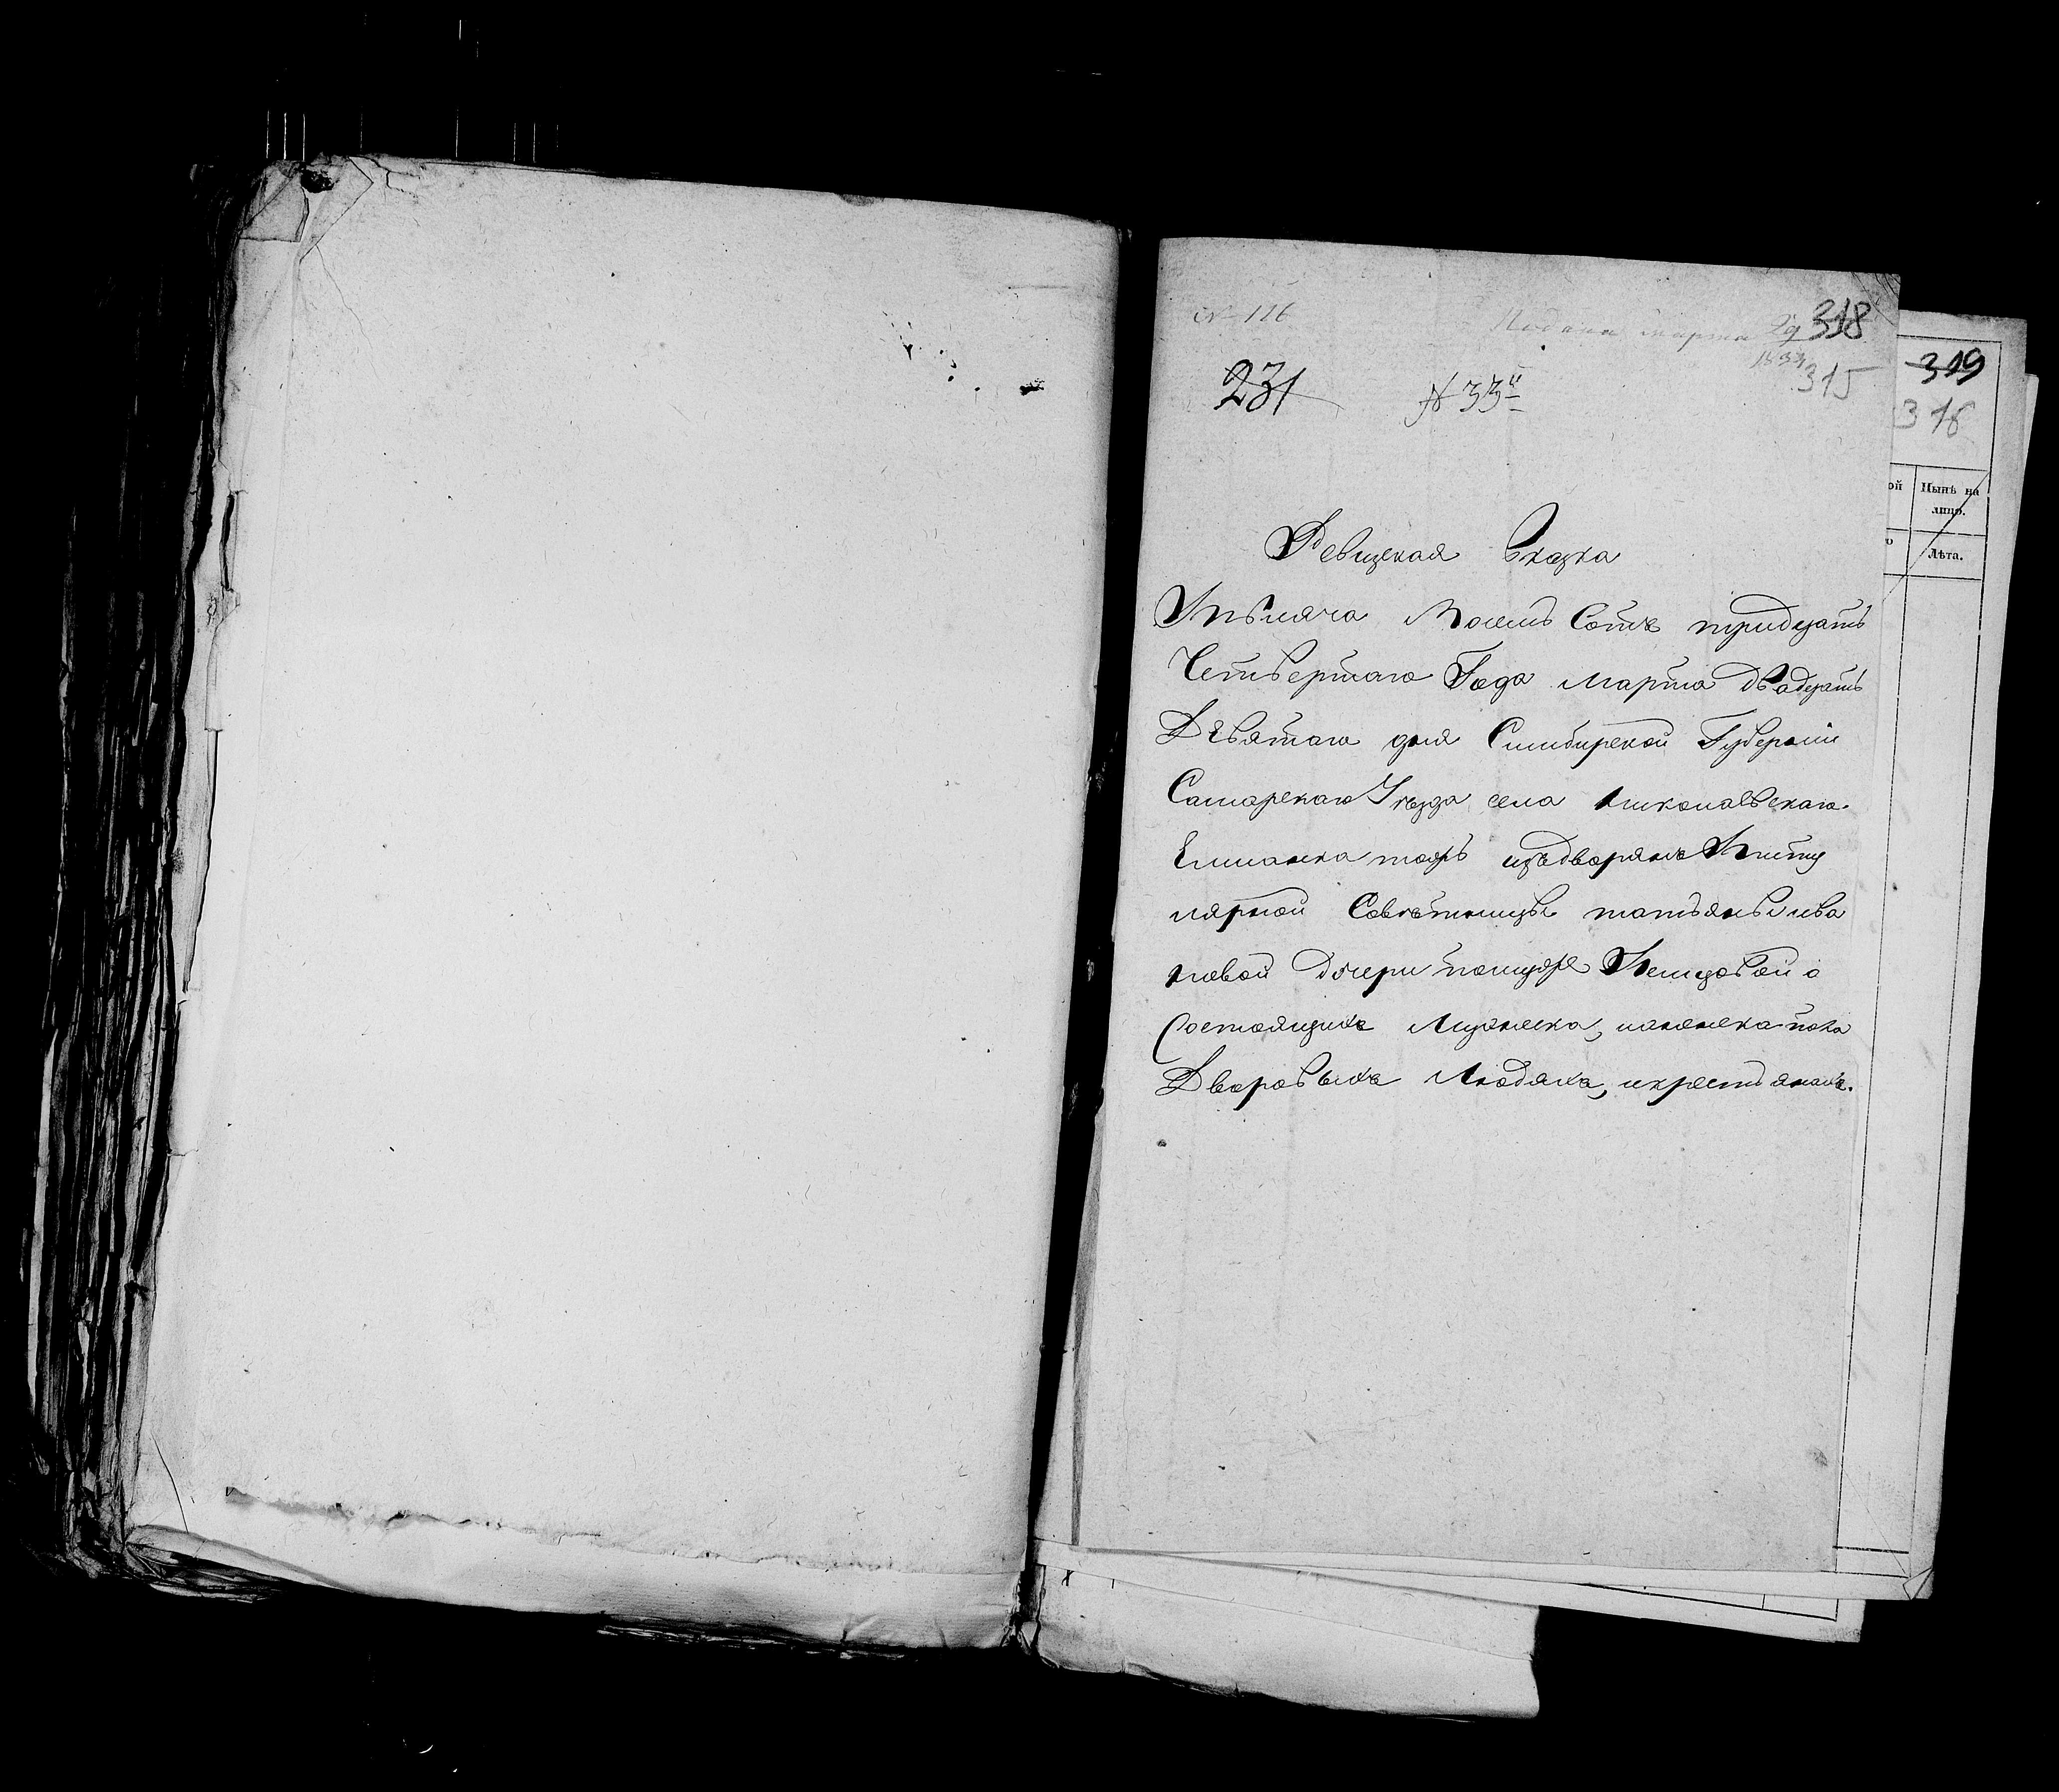 № 116
Подана марта 29 318
1834 315
231 № 33й
319
316
ой Нынѣ на
лицо.
о Лѣта.
Ревизская Сказка
Тысяча Восемь Сотъ тридцать
Четвертаго Года марта двадцать
Девятаго дня Симбирской Губернiи
Самарскаго Уѣзда села николаевскаго.
Емманка тожъ изъ дворянъ Титу
лярной Совѣтницы татьяны ива
новой дочери
Состоящихъ Мужеска, иженска пола
Дворовыхъ Людяхъ, икрестьянахъ.